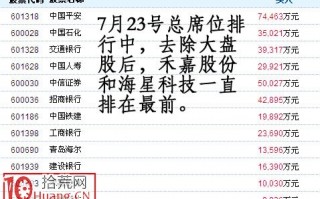 601318 中国平安 74,463万元
600028 中国石化 35,021万元
601328 交通银行 31,317万元
601628 中国人寿 29,621万元
600030 中信证券 50,027万元
600036 招商银行 42,895万元
601186 中国铁建 19,892万元
601398 工商银行 23,690万元
600690 青岛海尔 13,596万元
601939 建设银行 16,390万元
10,030万元
7月23号总席位排
行中，去除大盘
股后，禾嘉股份
和海星科技一直
排在最前。
10 拾荒网
Huang.CN